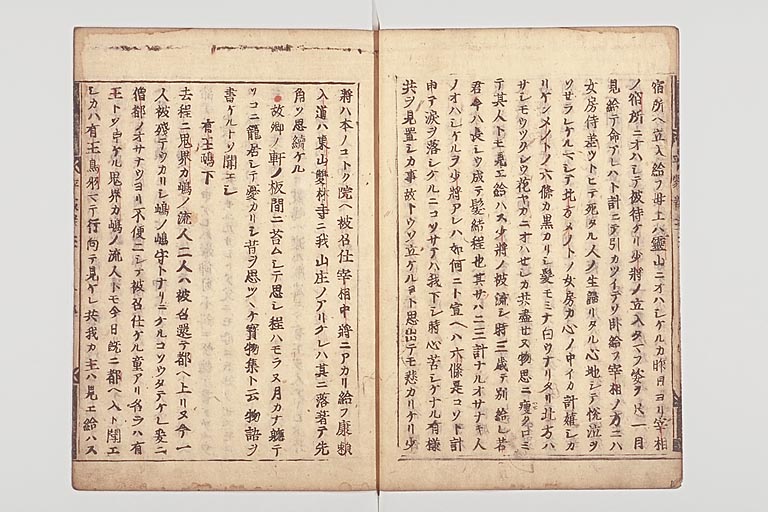 宿所ヘ立入給フ母上ハ靈山ニオハシケルカ昨日ヨリ宰相
ノ宿所ニオハシテ被待ケリ少將ノ立入タマフ姿ヲ只一目
見給テ命アレハト計ニテ引カツイテソ臥給フ宰相ノ方ニハ
女房侍差ツトヒテ死タル人ノ生歸リタル心地シテ悦泣ヲ
ソセラレケルマシテ北方メノトノ女房カ心ノ中イカ計嬉シカ
リケンメノトノ六條カ黒カリシ髪モミナ白クナリタリ北方ハ
サシモウツクシウ花ヤカニオハセシカ共盡セヌ物思ニ痩クロミ
テ其人トモ見エ給ハス少將ノ被流シ時三歳テ別給シ若
君今ハ長シウ成テ髪結程也其ソハニ三計ナルオサナキ人
ノオハシケルヲ少將アレハ如何ニト宣ヘハ六條是コソト計
申テ涙ヲ落シケルニコソサテハ我下シ時心苦シケナル有樣
共ヲ見置シカ事故トウソ立ケルヨト思出テモ悲カリケリ少
將ハ本ノコトク院ヘ被召仕宰相中將ニアカリ給フ康頼
入道ハ東山雙林寺ニ我山庄ノアリケレハ其ニ落著テ先
角ソ思續ケル
故郷ノ軒ノ板間ニ苔ムシテ思シ程ハモラヌ月カナ聽テ
ソコニ籠居シテ憂カリシ昔ヲ思ツヽケ寳物集ト云物語ヲ
書ケルトソ聞エシ
有王嶋下
去程ニ鬼界カ嶋ノ流人二人ハ被召還テ都ヘ上リヌ今一
人被殘テウカリシ嶋ノ嶋守トナリニケルコソウタテケレ爰ニ
僧都ノオサナウヨリ不便ニシテ被召仕ケル童アリ名ヲハ有
王トソ申ケル鬼界カ嶋ノ流人トモ今日既ニ都ヘ入ト聞エ
シカハ有王鳥羽マテ行向テ見ケレ共我カ主ハ見エ給ハス